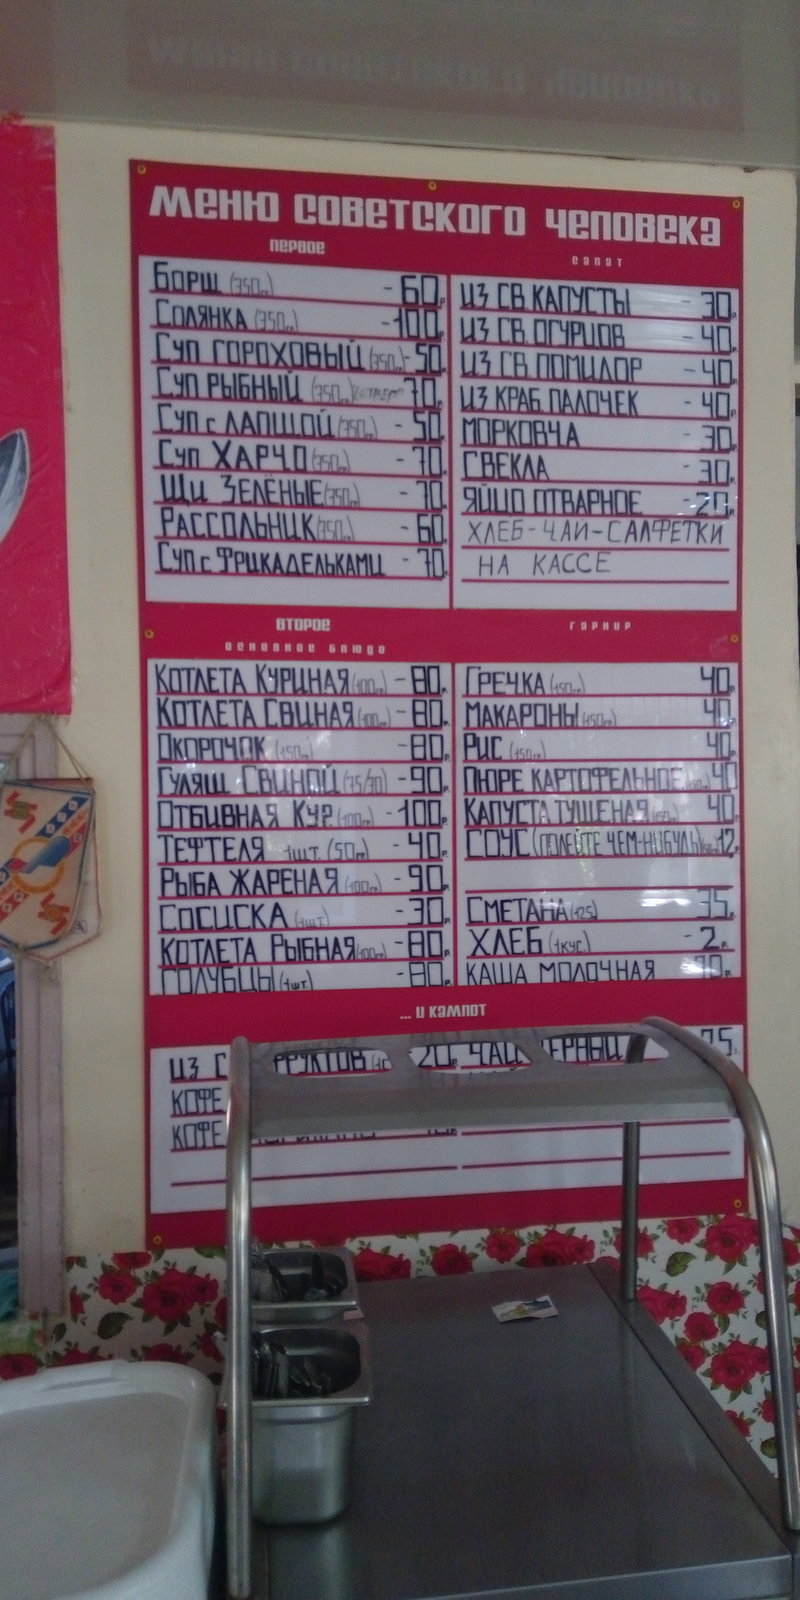 меню советского человека
первое
Борщ (350гр) - 60р.
Солянка (350гр) - 100р.
Суп гороховый (350гр) - 50р.
Суп рыбный (350гр) 70р.
Суп с лапшой (350гр) - 50р.
Суп Харчо (350гр) - 70р.
Щи зелёные (350гр) - 70р.
Рассольник (350гр) - 60р.
Суп с фрикадельками - 70р.
салат
из св. капусты - 30р.
из св. огурцов - 40р.
из св. помидор - 40р.
из краб. палочек - 40р.
морковча - 30р.
свекла - 30р.
яйцо отварное - 20р.
ХЛЕБ-ЧАЙ-САЛФЕТКИ
НА КАССЕ
второе
основное блюдо
Котлета куриная (100гр) - 80р.
Котлета свиная (100гр) - 80р.
Окорочок (150гр) - 80р.
Гуляш свиной (75/30) - 90р.
Отбивная кур. (100гр) - 100р.
Тефтеля 1шт. (50гр) - 40р.
Рыба жареная (100гр) - 90р.
Сосиска (1шт.) - 30р.
Котлета рыбная (100гр) - 80р.
Голубцы (1шт.) - 80р.
гарнир
Гречка (150гр) 40р.
Макароны (150гр) 40р.
Рис (150гр) 40р.
Пюре картофельное 40
Капуста тушеная (150гр) 40р.
Соус (полейте чем-нибудь) 12р.
Сметана (125) 35р.
Хлеб (1кус.) - 2р.
Каша молочная
... и кампот
из фруктов 20р.
Кофе
Кофе
Чай